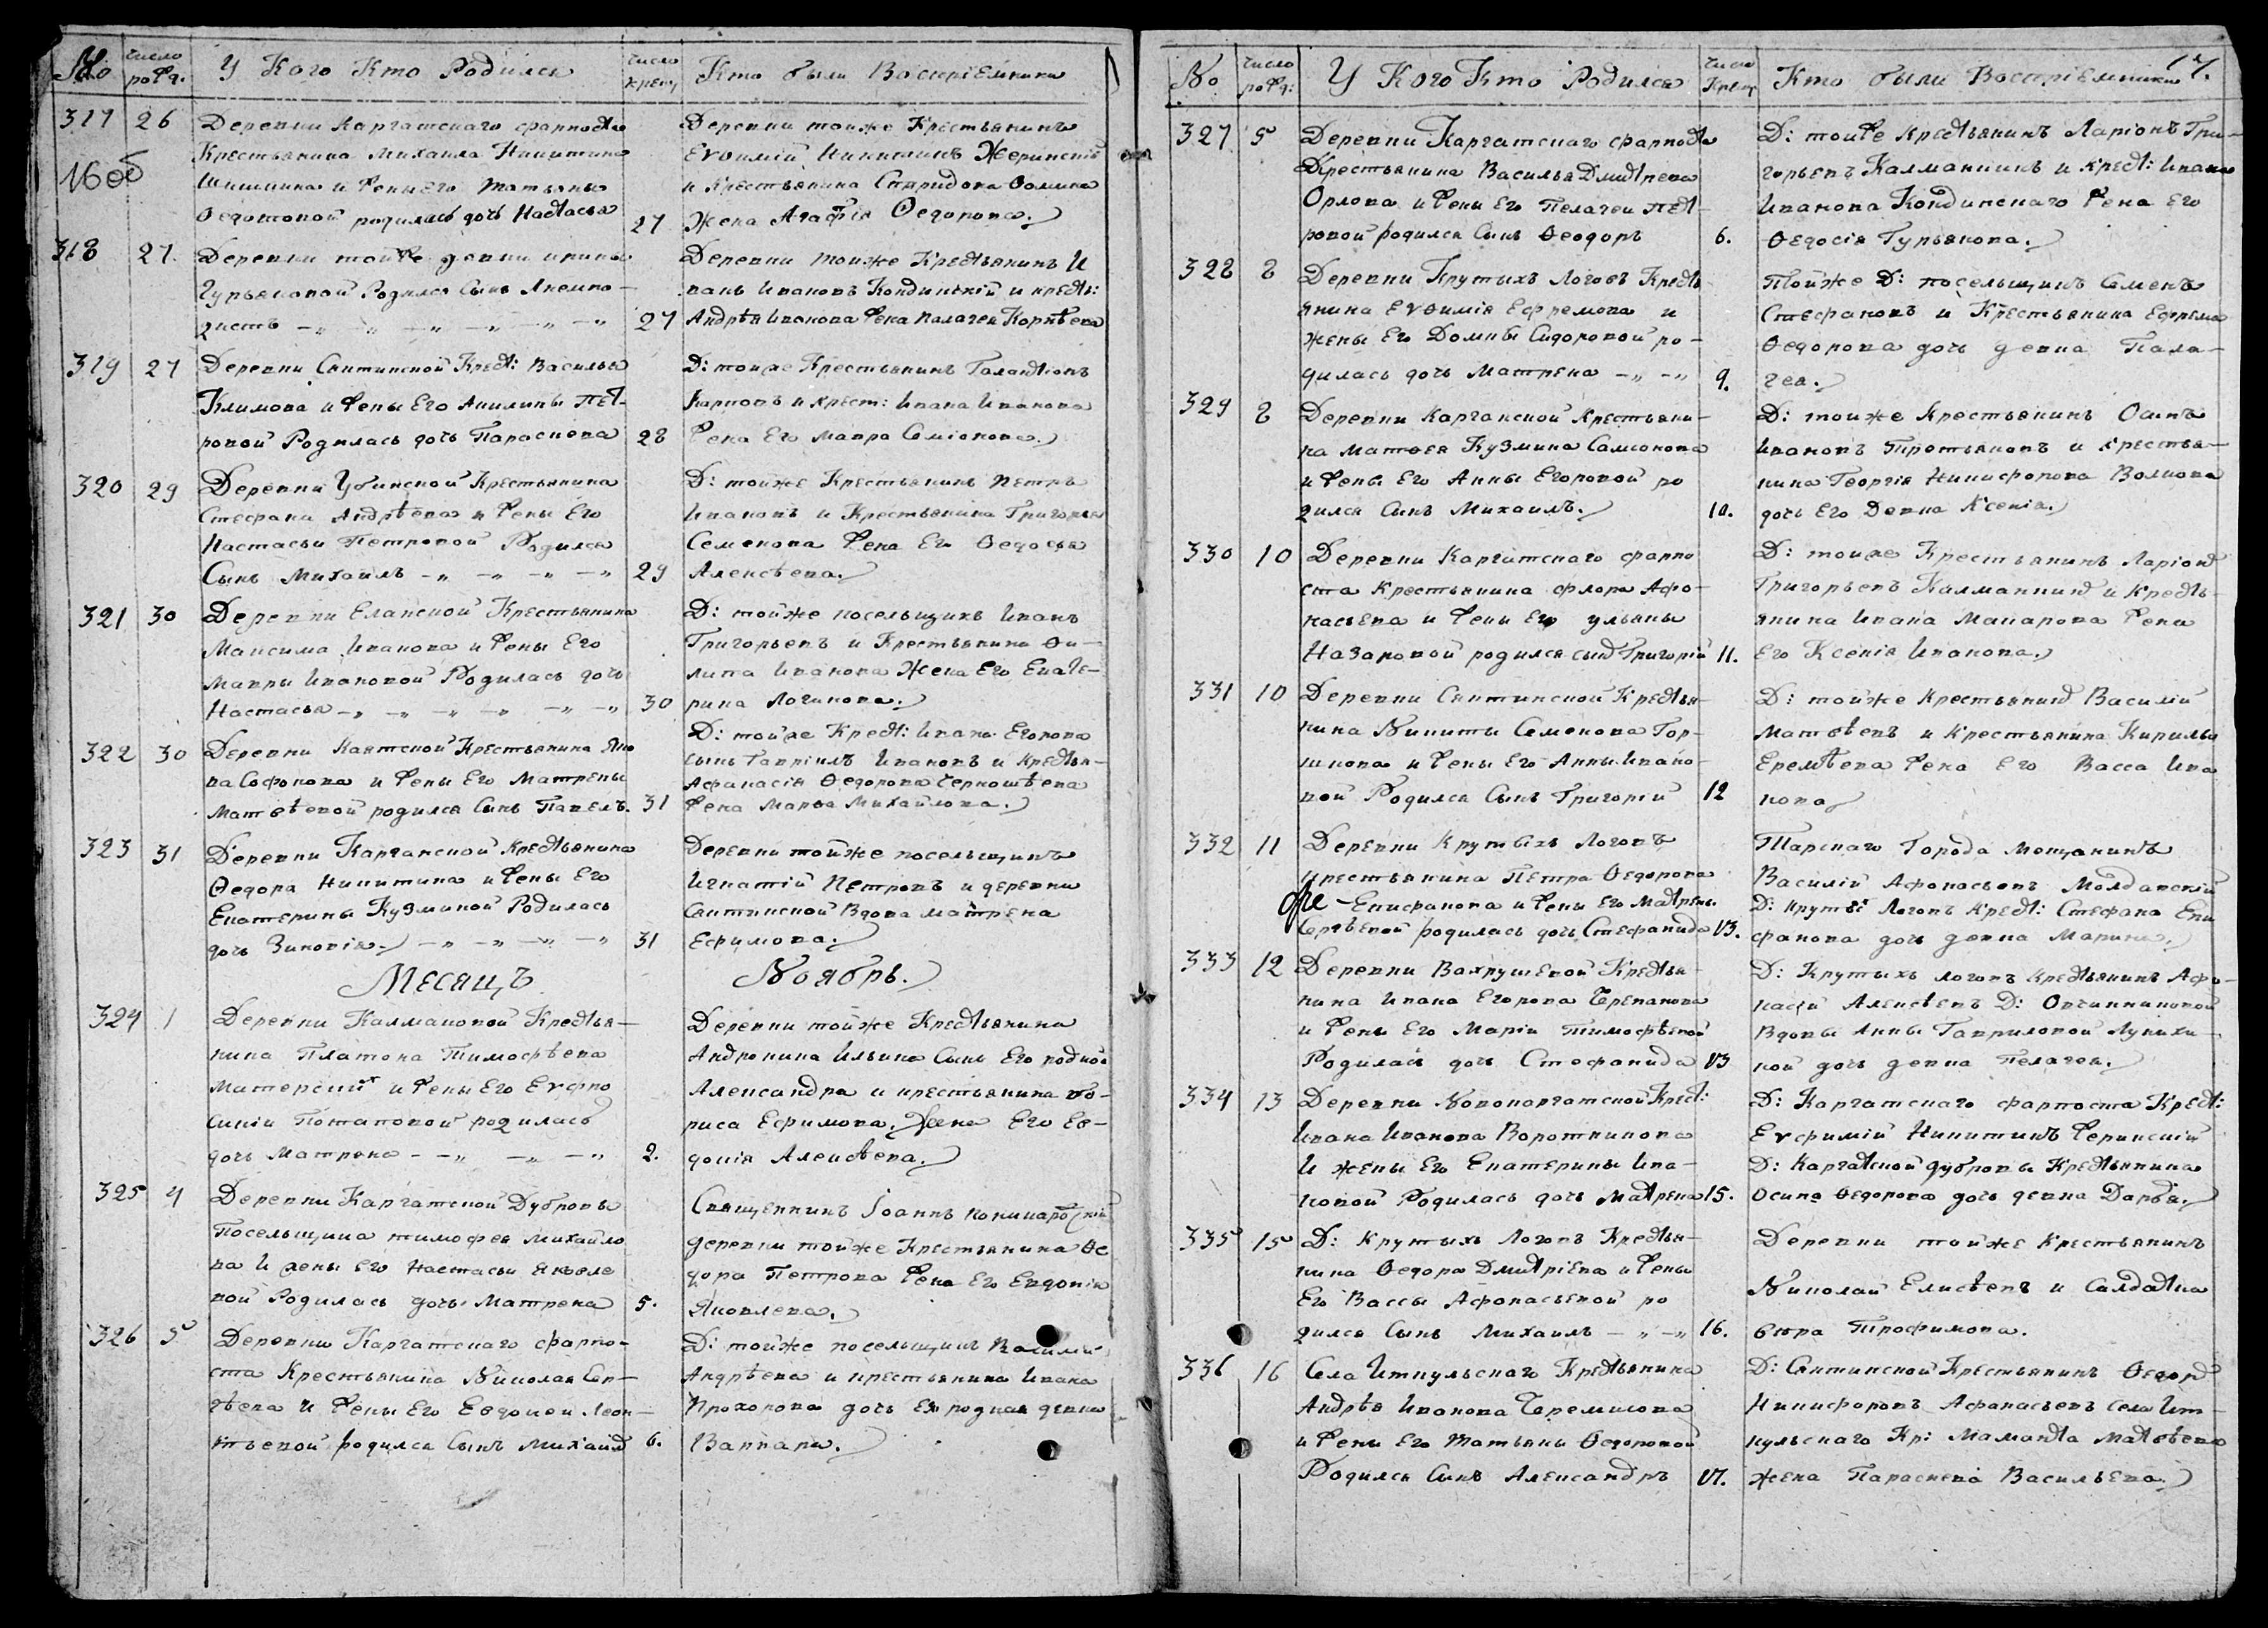 № число рожд. У Кого Кто Родился число крещ. Кто были Восприемники
317 26 Деревни Каргатскаго фарпоста
Крестьянина Михаила Никитина
16об
Шишкина и жены Его Татьяны
Федотовой родилась дочь Настасья 27
Деревни тойже Крестьянинъ
Евѳимій Никитинъ Жеринскій
и Крестьянина Спиридона Фомина
Жена Агафія Ѳедорова.
318 27. Деревни тойже девки
Гурьяновой Родился Сынъ 27
Деревни тойже Крестьянинъ И
ванъ Ивановъ Кондинскій и крестья:
Андрѣя Иванова жена Палагея Корнѣева
319 27 Деревни Сяктинской Крест: Василья
Климова и жены Его Акилины Пет-
ровой Родилась дочь Параскева 28
Д: тойже Крестьянинъ Галактіонъ
Карповъ и крест: Ивана Иванова
жена Его Мавра Семіонова.
320 29 Деревни Убинской Крестьянина
Стефана Андрѣева и жены Его
Настасьи Петровой Родился
Сынъ Михаилъ 29
Д: тойже Крестьянинъ Петръ
Ивановъ и Крестьянина Григорья
Семенова жена Его Ѳедосья
Алексѣева.
321 30 Деревни Еланской Крестьянина
Максима Иванова и жены Его
Мавры Ивановой Родилась дочь
Настасья 30
Д: тойже посельщикъ Иванъ
Григорьевъ и Крестьянина Фи-
липа Иванова Жена Его Екате-
рина Логинова.
322 30 Деревни Каятской Крестьянина Яко
ва Софонова и жены Его Матрены
Матвѣевой родился Сынъ Павелъ. 31
Д: тойже Крест: Ивана Егорова
сынъ Гавріилъ Ивановъ и крестья-
Афанасія Ѳедорова Черношѣева
жена Марѳа Михайлова.
323 31 Деревни Карганской Крестьянина
Ѳедора Никитина и жены Его
Екатерины Кузминой Родилась
дочь Зиновія. 31
Деревни тойже посельщикъ
Игнатій Петровъ и деревни
Сяктинской Вдова Матрена
Ефимова.
Месяцъ Ноябрь.
324 1 Деревни Калмаковой Крестья-
нина Платона Тимофѣева
и жены Его Евфро
синіи Потаповой родилась
дочь Матрена 2.
Деревни тойже Крестьянина
Андроника Ильина Сынъ Его родной
Александра и крестьянина Бо-
риса Ефимова. Жена Его Ев-
докія Алексѣева.
325 4 Деревни Каргатской Дубровы
Посельщика Тимофея Михайло
ва И жены Его Настасьи Яковле
вой Родилась дочь Матрена 5.
Священникъ Іоаннъ
деревни тойже Крестьянина Ѳе
дора Петрова жена Его Евдокія
Яковлева.
326 5 Деревни Каргатскаго фарпо-
ста Крестьянина Николая Сер-
гѣева И жены Его Евдокеи Леон-
тьевой родился Сынъ Михаилъ 6.
Д: тойже посельщикъ Василій
Андрѣева и крестьянина Ивана
Прохорова дочь Ея родная девка
Варвара.
17.
№ число рожд: У Кого Кто Родился число Крещ Кто были Восприемники
327 5 Деревни Каргатскаго фарпоста
Крестьянина Василья Дмитрева
Орлова и жены Его Пелагеи Пет-
ровой родился Сынъ Ѳеодоръ 6.
Д: тойже крестьянинъ Ларіонъ Гри-
горьевъ Калманкинъ и крест: Ивана
Иванова Кондинскаго жена Его
Ѳедосія Гурьянова.
328 8 Деревни Крутыхъ Логовъ Кресть
янина Евѳимія Ефремова и
жены Его Домны Сидоровой ро-
дилась дочь Матрена 9.
Тойже Д: посельщикъ Семенъ
Стефановъ и Крестьянина Ефрема
Ѳедорова дочь девка Пала-
гея.
329 8 Деревни Карганской Крестьяни-
на Матвея Кузмина Самсонова
и жены Его Анны Егоровой ро
дился Сынъ Михаилъ. 10.
Д: тойже Крестьянинъ Осипъ
Ивановъ Тротьяковъ и крестья-
нина Георгія Никифорова Волкова
дочь Его Девка Ксенія.
330 10 Деревни Каргатскаго фарпо
ста Крестьянина Флора Афо-
насьева и жены Его Ульяны
Назаровой родился сынъ Григорій 11.
Д: тойже Крестьянинъ Ларіонъ
Григорьевъ Калманкинъ и кресть-
янина Ивана Макарова жена
Его Ксенія Иванова.
331 10 Деревни Сяктинской Крестья-
нина Никиты Семенова Гор-
шкова и жены Его Анны Ивано-
вой Родился Сынъ Григорій 12
Д: тойже Крестьянинъ Василій
Матвѣевъ и Крестьянина Кирилы
Еремѣева жена Его Васса Ива
нова
332 11 Деревни Крутыхъ Логовъ
крестьянина Петра Ѳедорова
Епифанова и жены Его Матрены
Сергѣевой родилась дочь Стефанида 13.
Тарскаго Города Мещанинъ
Василій Афонасьевъ Молдавскій
Д: Крутыхъ Логовъ Крест: Стефана Епи
фанова дочь девка Марина.
333 12 Деревни Вахрушевой Крестья-
нина Ивана Егорова Черепанова
и жены Его Маріи Тимофѣевой
Родилась дочь Стефанида 13
Д: Крутыхъ Логовъ крестьянинъ Афо-
насій Алексѣевъ Д: Овчинниковой
Вдовы Анны Гавриловой Лукихи-
ной дочь девка Пелагея.
334 13 Деревни Новокаргатской Крест:
Ивана Иванова Воротникова
И жены Его Екатерины Ива-
новой Родилась дочь Матрена 15.
Д: Каргатскаго фарпоста Крест:
Евфимій Никитинъ Жеринскій
Д: Каргатской дубровы Крестьянина
Осипа Ѳедорова дочь девка Дарья.
335 15 Д: Крутыхъ Логовъ Крестья-
нина Ѳедора Дмитріева и жены
Его Вассы Афонасьевой ро
дился Сынъ Михаилъ 16.
Деревни тойже Крестьянинъ
Николай Елисѣевъ и Салдатка
Ѳекра Трофимова.
336 16 Села Иткульскаго Крестьянина
Андрѣя Иванова Черемисова
и жены Его Татьяны Ѳедоровой
Родился Сынъ Александръ 17.
Д: Сяктинской Крестьянинъ Ѳедоръ
Никифоровъ Афанасьевъ Села Ит-
кульскаго Кр: Маманта Матвѣева
жена Параскева Васильева.